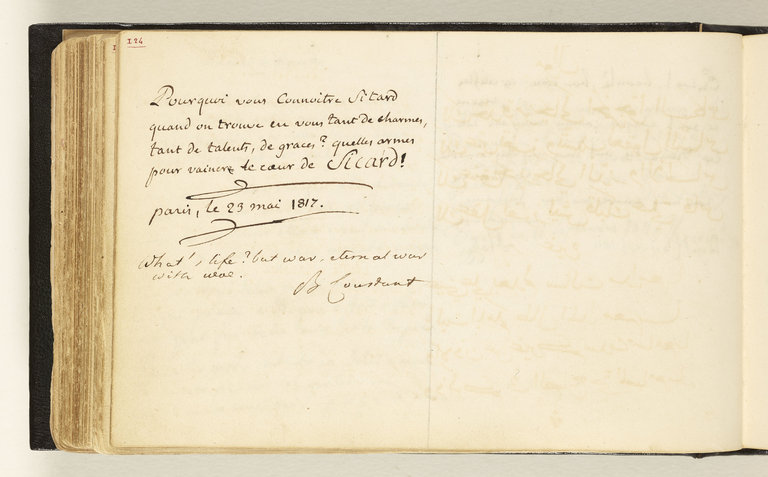 124
Pourquoi vous Connoitre Si tard
quand on trouve en vous tant de charmes,
tant de talents, de graces? quelles armes
pour vaincre le cœur de Sicard!
paris, le 23 mai 1817.
What's life? but war, eternal war
with woe.
B Constant